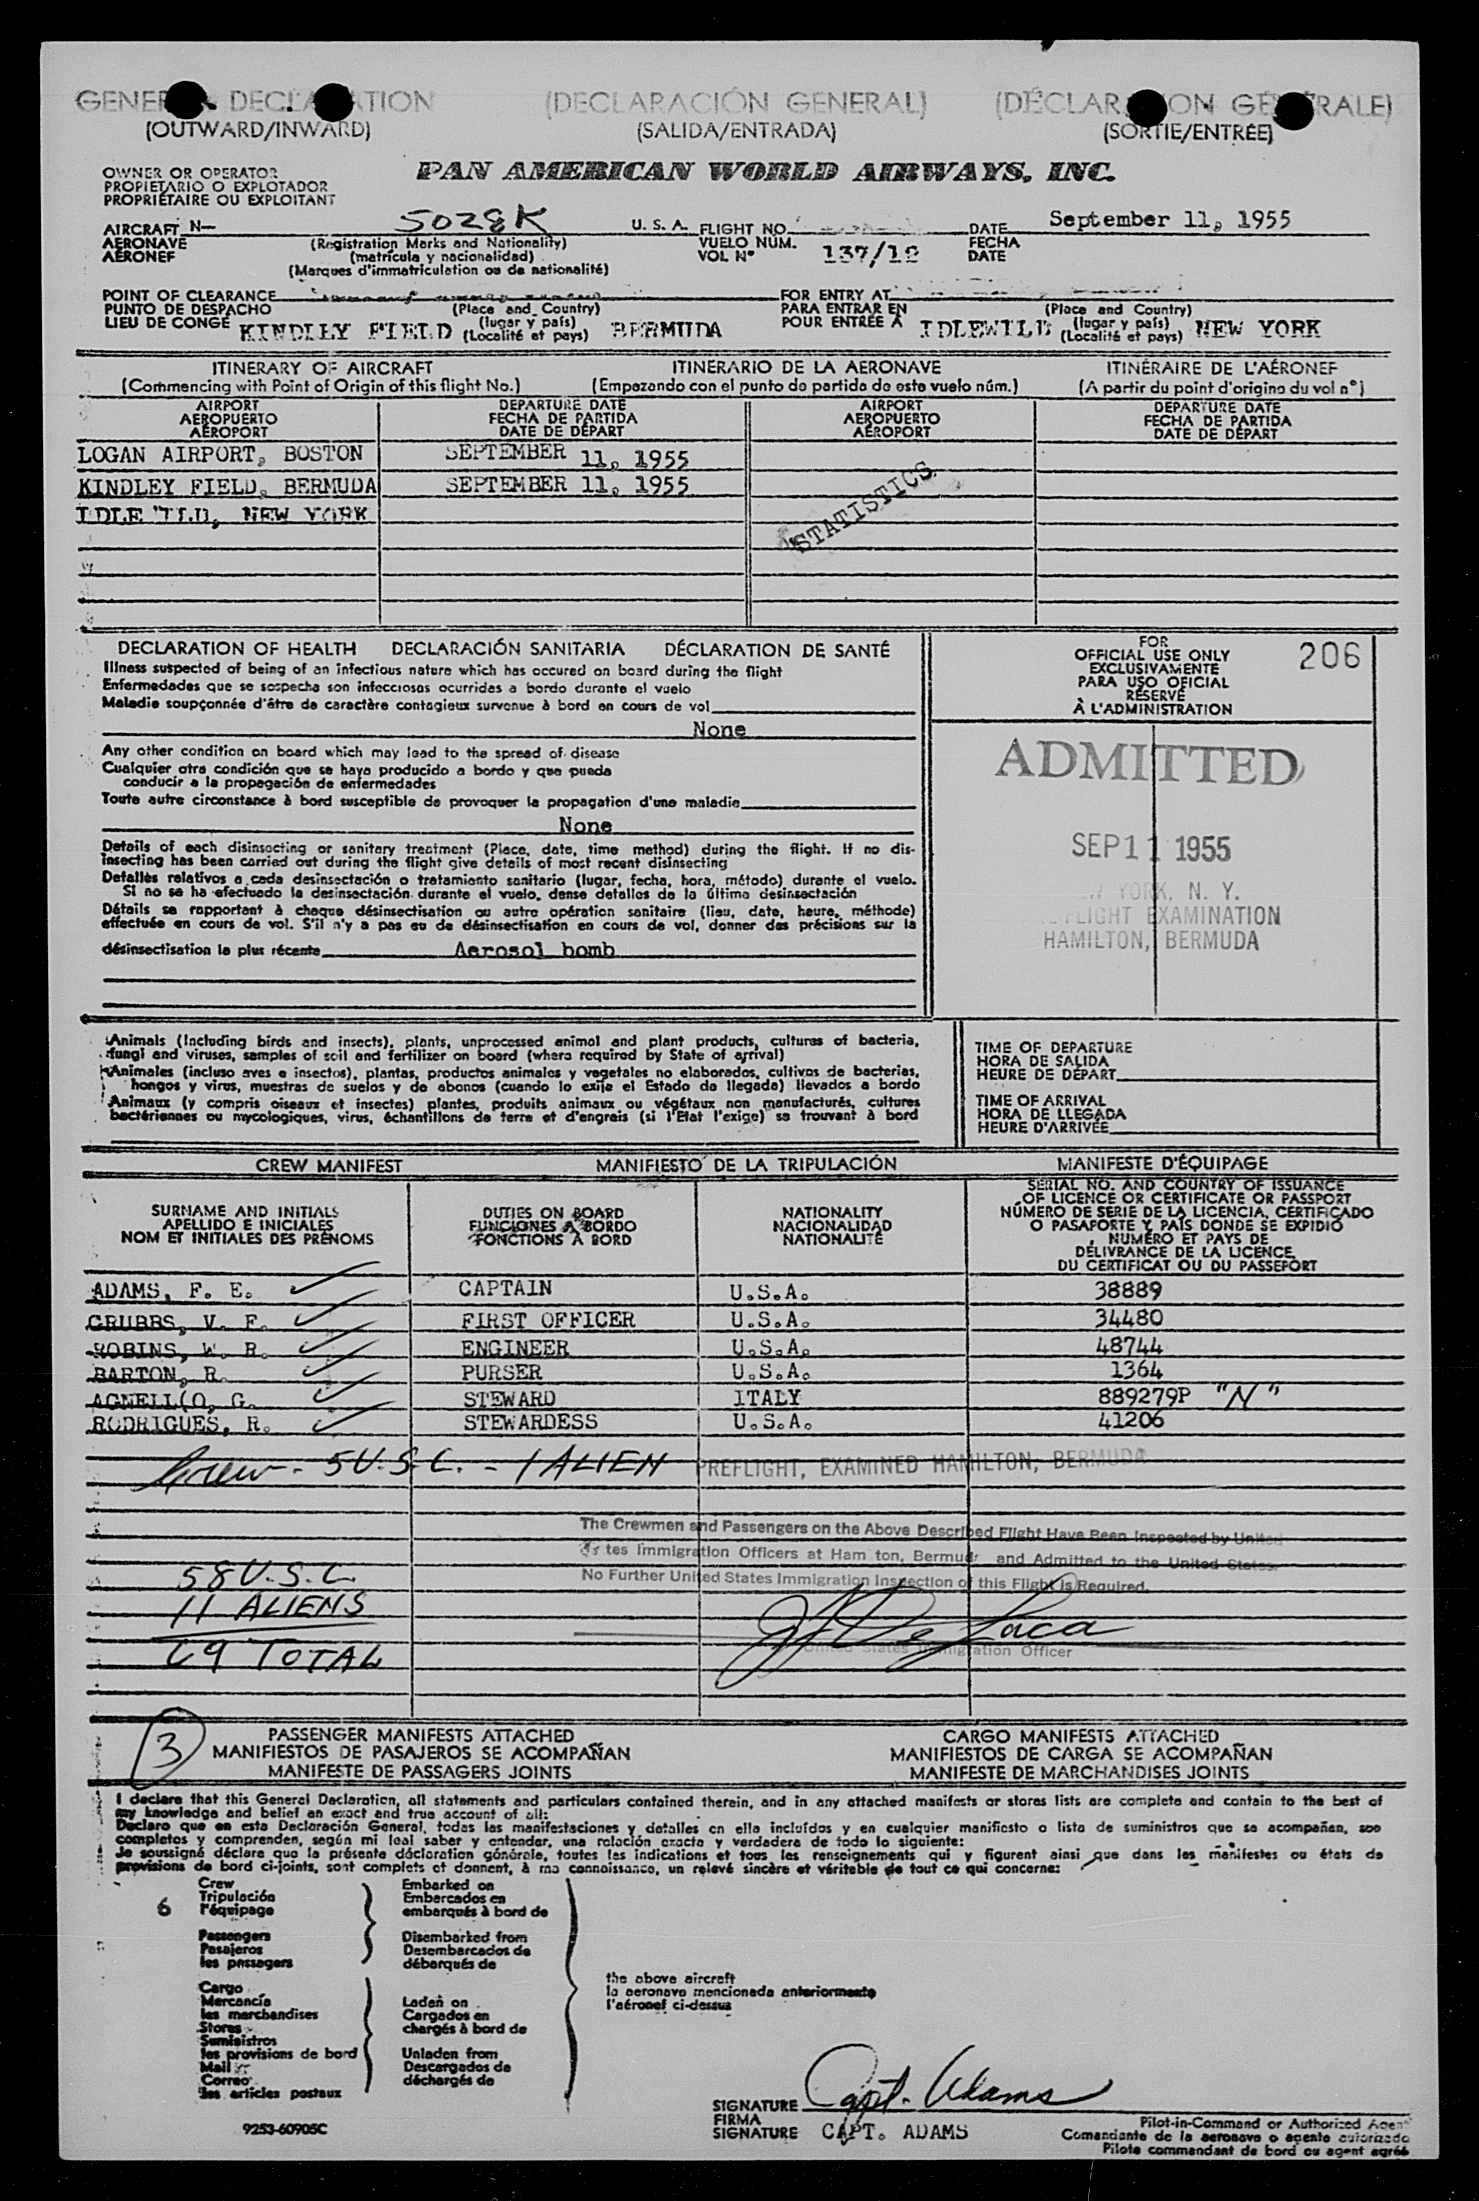 GENERAL DECLARATION (DECLARACIÓN GENERAL) (DÉCLARATION GÉNÉRALE)
(OUTWARD/INWARD) (SALIDA/ENTRADA) (SORTIE/ENTRÉE)
OWNER OR OPERATOR
PROPIETARIO O EXPLOTADOR
PROPRIÉTAIRE OU EXPLOITANT
PAN AMERICAN WORLD AIRWAYS, INC.
AIRCRAFT N— 5028K U. S. A. FLIGHT NO. DATE September 11, 1955
AERONAVE (Registration Marks and Nationality) VUELO NUM. 137/12 FECHA
AÉRONEF (matrícula y nacionalidad) VOL N° DATE
(Marques d'immatriculation ou de nationalité)
POINT OF CLEARANCE (Place and Country) FOR ENTRY AT (Place and Country)
PUNTO DE DESPACHO (lugar y país) PARA ENTRAR EN (lugar y país)
LIEU DE CONGÉ KINDLEY FIELD (Localité et pays) BERMUDA POUR ENTRÉE À IDLEWILD (Localité et pays) NEW YORK
ITINERARY OF AIRCRAFT ITINERARIO DE LA AERONAVE ITINÉRAIRE DE L'AÉRONEF
(Commencing with Point of Origin of this flight No.) (Empezando con el punto de partida de este vuelo núm.) (A partir du point d'origine du vol n°)
AIRPORT DEPARTURE DATE AIRPORT DEPARTURE DATE
AEROPUERTO FECHA DE PARTIDA AEROPUERTO FECHA DE PARTIDA
AÉROPORT DATE DE DÉPART AÉROPORT DATE DE DÉPART
LOGAN AIRPORT, BOSTON SEPTEMBER 11, 1955
KINDLEY FIELD, BERMUDA SEPTEMBER 11, 1955
IDLE'ILD, NEW YORK
STATISTICS
DECLARATION OF HEALTH DECLARACIÓN SANITARIA DÉCLARATION DE SANTÉ
Illness suspected of being of an infectious nature which has occured on board during the flight
Enfermedades que se sospecha son infecciosas ocurridas a bordo durante el vuelo
Maladie soupçonnée d'être de caractère contagieux survenue à bord en cours de vol
None
Any other condition on board which may lead to the spread of disease
Cualquier otra condición que se haya producido a bordo y que pueda
conducir a la propegación de enfermedades
Toute autre circonstance à bord susceptible de provoquer la propagation d'une maladie
None
Details of each disinsecting or sanitary treatment (Place, date, time method) during the flight. If no dis-
insecting has been carried out during the flight give details of most recent disinsecting
Detalles relativos a cada desinsectación o tratamiento sanitario (lugar, fecha, hora, método) durante el vuelo.
Si no se ha efectuado la desinsectación durante el vuelo, dense detalles de la última desinsectación
Détails se rapportant à chaque désinsectisation ou autre opération sanitaire (lieu, date, heure, méthode)
effectuée en cours de vol. S'il n'y a pas eu de désinsectisation en cours de vol, donner des précisions sur la
désinsectisation la plus récente Aerosol bomb
FOR
OFFICIAL USE ONLY
EXCLUSIVAMENTE
PARA USO OFICIAL
RÉSERVÉ
À L'ADMINISTRATION
206
ADMITTED
SEP 11 1955
YORK, N. Y.
FLIGHT EXAMINATION
HAMILTON, BERMUDA
Animals (Including birds and insects), plants, unprocessed animal and plant products, cultures of bacteria,
fungi and viruses, samples of soil and fertilizer on board (where required by State of arrival)
Animales (incluso aves e insectos), plantas, productos animales y vegetales no elaborados, cultivos de bacterias,
hongos y virus, muestras de suelos y de abonos (cuando lo exija el Estado de llegada) llevados a bordo
Animaux (y compris oiseaux et insectes) plantes, produits animaux ou végétaux non manufacturés, cultures
bactériennes ou mycologiques, virus, échantillons de terre et d'engrais (si l'Etat l'exige) se trouvant à bord
TIME OF DEPARTURE
HORA DE SALIDA
HEURE DE DÉPART
TIME OF ARRIVAL
HORA DE LLEGADA
HEURE D'ARRIVÉE
CREW MANIFEST MANIFIESTO DE LA TRIPULACIÓN MANIFESTE D'ÉQUIPAGE
SURNAME AND INITIALS
APELLIDO E INICIALES
NOM ET INITIALES DES PRÉNOMS
DUTIES ON BOARD
FUNCIONES A BORDO
FONCTIONS À BORD
NATIONALITY
NACIONALIDAD
NATIONALITÉ
SERIAL NO. AND COUNTRY OF ISSUANCE
OF LICENCE OR CERTIFICATE OR PASSPORT
NÚMERO DE SERIE DE LA LICENCIA, CERTIFICADO
O PASAPORTE Y PAÍS DONDE SE EXPIDIÓ
NUMÉRO ET PAYS DE
DÉLIVRANCE DE LA LICENCE,
DU CERTIFICAT OU DU PASSEPORT
ADAMS, F. E. CAPTAIN U.S.A. 38889
GRUBBS, V. F. FIRST OFFICER U.S.A. 34480
ROBINS, W. R. ENGINEER U.S.A. 48744
BARTON, R. PURSER U.S.A. 1364
AGNELLO, G. STEWARD ITALY 889279P "N"
RODRIGUES, R. STEWARDESS U.S.A. 41206
Crew - 5 U.S.C. - 1 ALIEN PREFLIGHT, EXAMINED HAMILTON, BERMUDA
The Crewmen and Passengers on the Above Described Flight Have Been Inspected by United
tes Immigration Officers at Ham ton, Bermuda and Admitted to the United States.
No Further United States Immigration Inspection of this Flight is Required.
58 U.S.C.
11 ALIENS
69 TOTAL
United States Immigration Officer
3
PASSENGER MANIFESTS ATTACHED CARGO MANIFESTS ATTACHED
MANIFIESTOS DE PASAJEROS SE ACOMPAÑAN MANIFIESTOS DE CARGA SE ACOMPAÑAN
MANIFESTE DE PASSAGERS JOINTS MANIFESTE DE MARCHANDISES JOINTS
I declare that this General Declaration, all statements and particulars contained therein, and in any attached manifests or stores lists are complete and contain to the best of
my knowledge and belief an exact and true account of all:
Declaro que en esta Declaración General, todas las manifestaciones y detalles en ella incluídos y en cualquier manifiesto o lista de suministros que se acompañen, son
completos y comprenden, según mi leal saber y entender, una relación exacta y verdadera de todo lo siguiente:
Je soussigné déclare que la présente déclaration générale, toutes les indications et tous les renseignements qui y figurent ainsi que dans les manifestes ou états de
provisions de bord ci-joints, sont complets et donnent, à ma connaissance, un relevé sincère et véritable de tout ce qui concerne:
6
Crew
Tripulación
l'équipage
Passengers
Pasajeros
les passagers
Cargo
Mercancía
les marchandises
Stores
Suministros
les provisions de bord
Mail
Correo
les articles postaux
Embarked on
Embarcados en
embarqués à bord de
Disembarked from
Desembarcados de
débarqués de
Laden on
Cargados en
chargés à bord de
Unladen from
Descargados de
déchargés de
the above aircraft
la aeronave mencionada anteriormente
l'aéronef ci-dessus
SIGNATURE Capt. Adams
FIRMA
SIGNATURE CAPT. ADAMS
Pilot-in-Command or Authorized Agent
Comandante de la aeronave o agente autorizado
Pilote commandant de bord ou agent agréé
9253-60905C